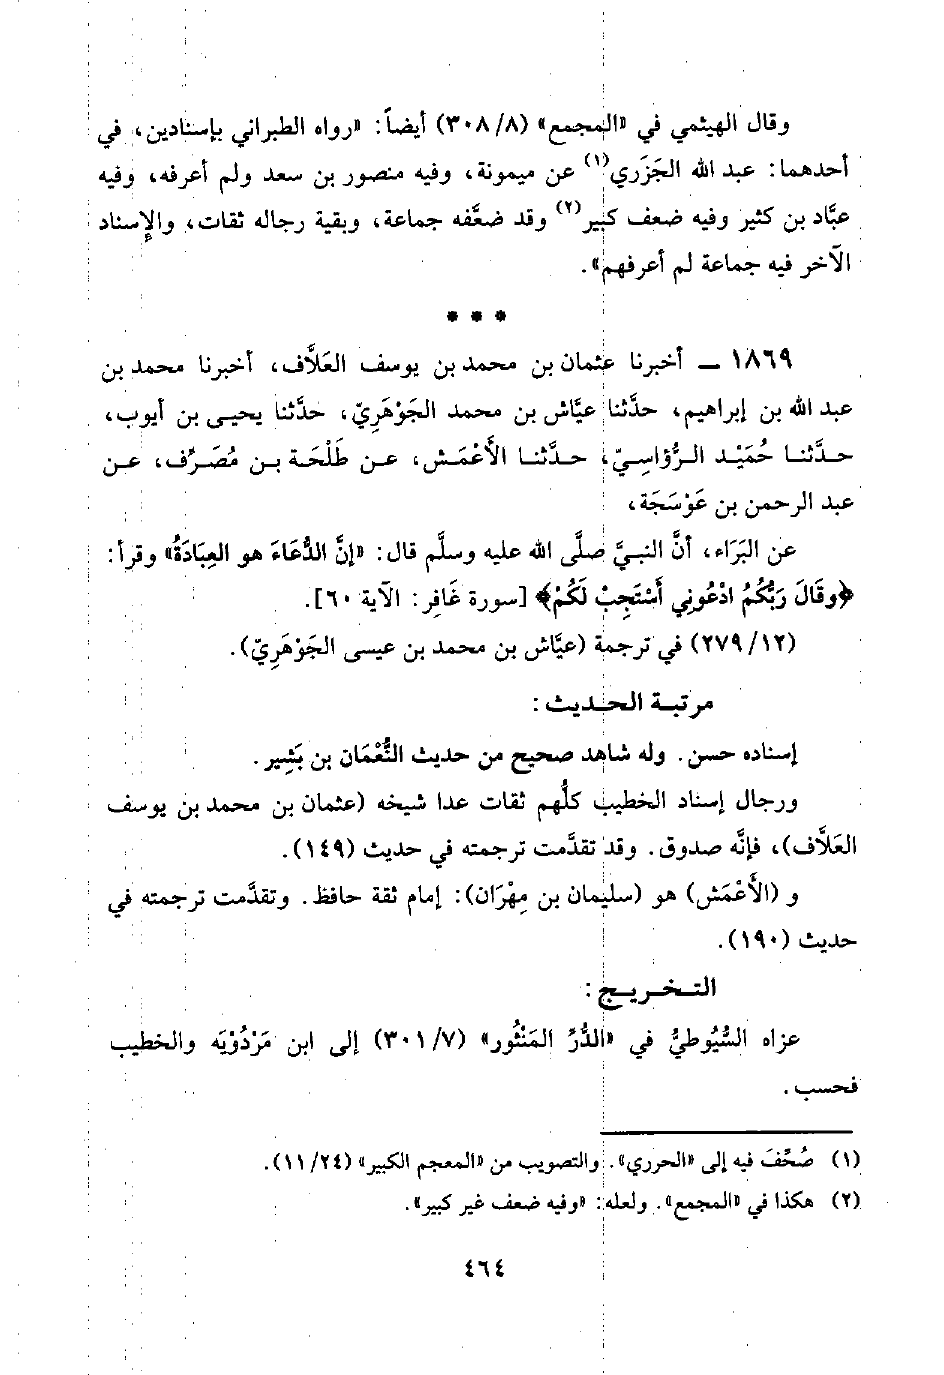 وقال الهيثمي في «المجمع» (٣٠٨/٨) أيضاً: «رواه الطبراني بإسنادين، في
أحدهما: عبد الله الجَزَري(١) عن ميمونة، وفيه منصور بن سعد ولم أعرفه، وفيه
عبَّاد بن كثير وفيه ضعف كبير(٢) وقد ضعَّفه جماعة، وبقية رجاله ثقات، والإِسناد
الآخر فيه جماعة لم أعرفهم».
* * *
١٨٦٩ ــ أخبرنا عثمان بن محمد بن يوسف العَلاَّف، أخبرنا محمد بن
عبد الله بن إبراهيم، حدَّثنا عيَّاش بن محمد الجَوْهَرِيّ، حدَّثنا يحيى بن أيوب،
حدَّثنا حُمَيْد الرُّؤاسِيّ، حدَّثنا الأَعْمَش، عن طَلْحَة بن مُصَرِّف، عن
عبد الرحمن بن عَوْسَجَة،
عن البَرَاء، أنَّ النبيَّ صلَّى الله عليه وسلَّم قال: «إنَّ الدُّعَاءَ هو العِبَادَةُ» وقرأ:
﴿وقَالَ رَبُّكُمُ ادْعُونِي أَسْتَجِبْ لَكُمْ﴾ [سورة غَافِر: الآية ٦٠].
(٢٧٩/١٢) في ترجمة (عيَّاش بن محمد بن عيسى الجَوْهَرِيّ).
مرتبة الحديث:
إسناده حسن. وله شاهد صحيح من حديث النُّعْمَان بن بَشِير.
ورجال إسناد الخطيب كلُّهم ثقات عدا شيخه (عثمان بن محمد بن يوسف
العَلاَّف)، فإنَّه صدوق. وقد تقدَّمت ترجمته في حديث (١٤٩).
و (الأَعْمَش) هو (سليمان بن مِهْرَان): إمام ثقة حافظ. وتقدَّمت ترجمته في
حديث (١٩٠).
التخريج:
عزاه السُّيُوطيُّ في «الدُّرِّ المَنْثُور» (٣٠١/٧) إلى ابن مَرْدُوْيَه والخطيب
فحسب.
(١) صُحِّفَ فيه إلى «الحرري». والتصويب من «المعجم الكبير» (١١/٢٤).
(٢) هكذا في «المجمع». ولعله: «وفيه ضعف غير كبير».
٤٦٤